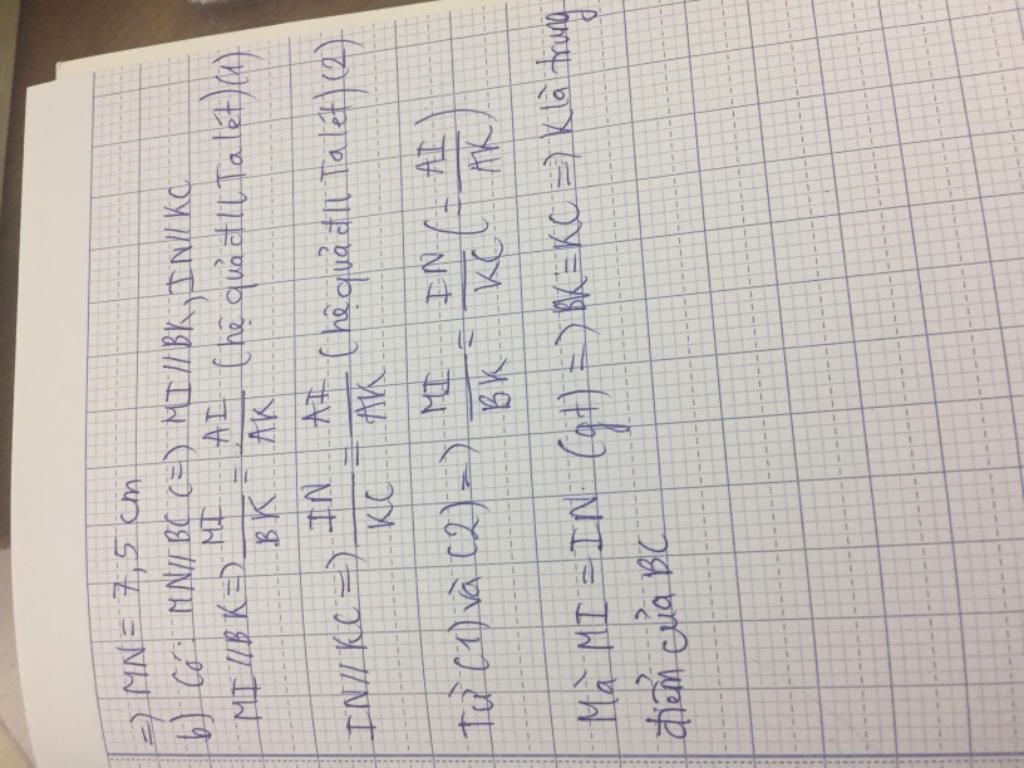 => MN = 7,5 cm
b) Có: MN//BC => MI//BK, IN//KC
MI//BK => MI/BK = AI/AK (hệ quả đ/l Talét) (1)
IN//KC => IN/KC = AI/AK (hệ quả đ/l Talét) (2)
Từ (1) và (2) => MI/BK = IN/KC (= AI/AK)
Mà MI = IN (gt) => BK = KC => K là trung
điểm của BC